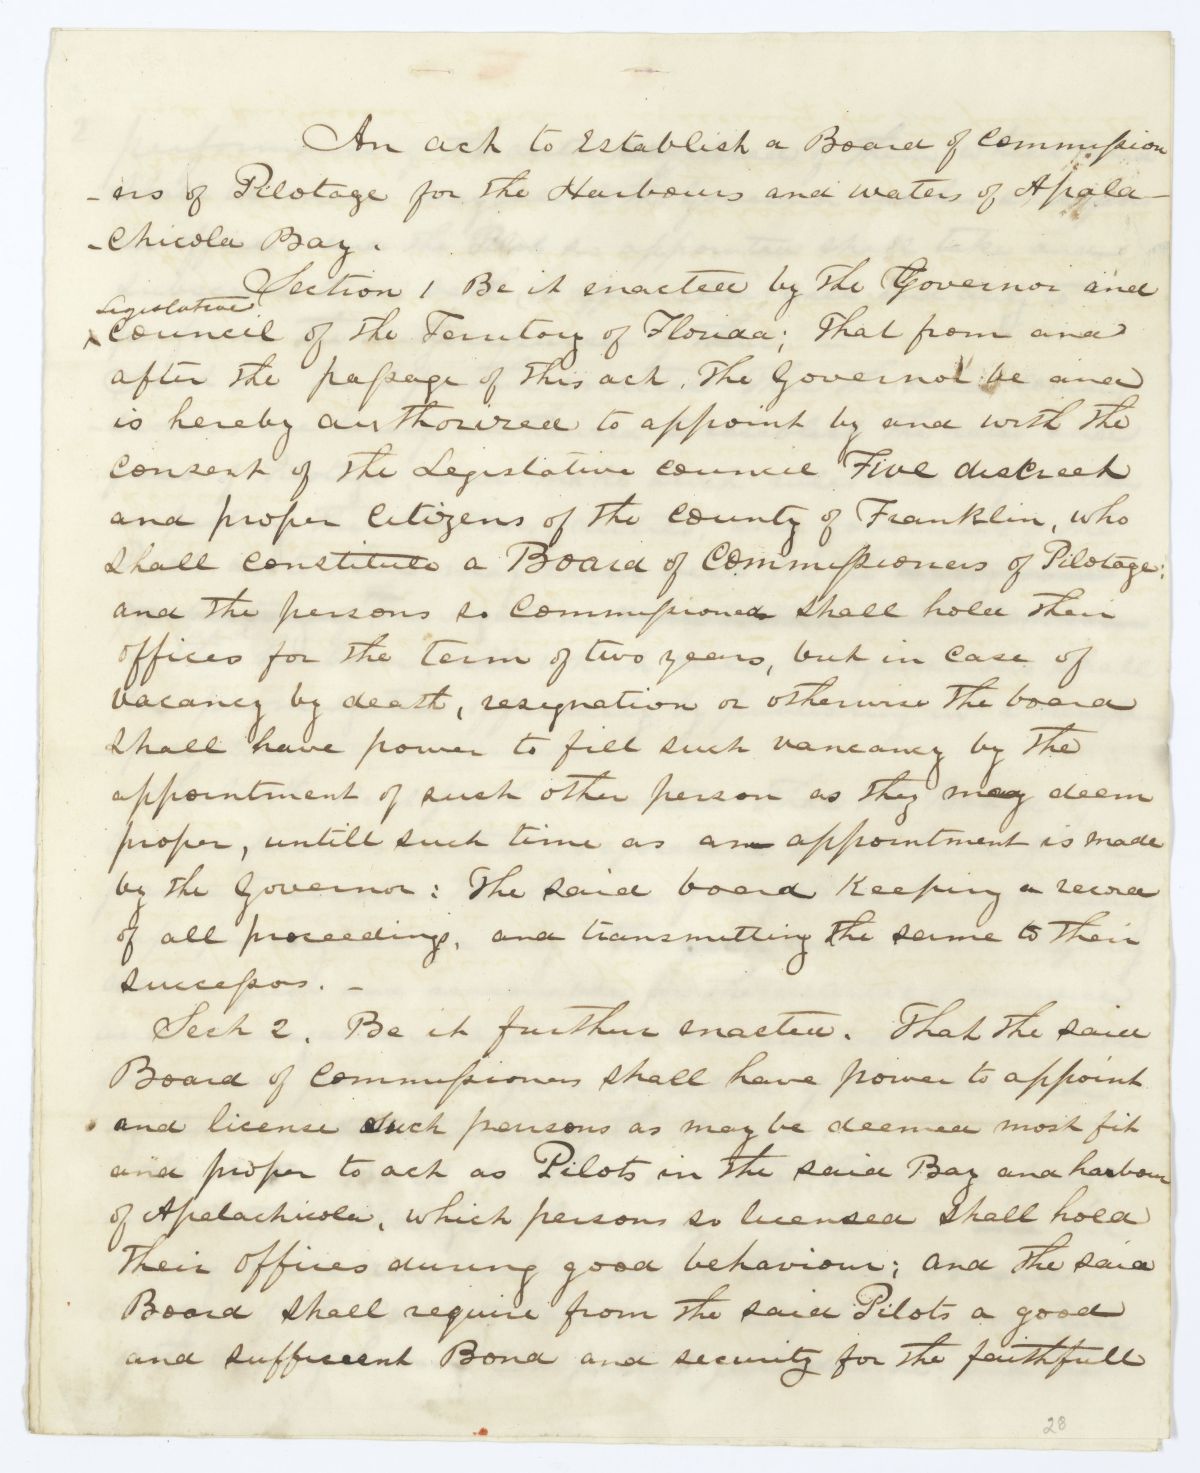 An act to Establish a Board of Commission
-ers of Pilotage for the Harbours and waters of Apala-
-chicola Bay.
Section 1 Be it enacted by the Governor and
Legislative
^ Council of the Territory of Florida; That from and
after the passage of this act, the Governor be and
is hereby authorized to appoint by and with the
consent of the Legislative council Five discreet
and proper Citizens of the county of Franklin, who
shall constitute a Board of Commissioners of Pilotage:
and the persons so Commissioned shall hold their
offices for the term of two years, but in case of
vacancy by death, resignation or otherwise the board
shall have power to fill such vancancy by the
appointment of such other person as they may deem
proper, untill such time as an appointment is made
by the Governor: The said board Keeping a record
of all proceedings, and transmitting the same to their
successors. -
Sect 2. Be it further enacted. That the said
Board of Commissioners shall have power to appoint
and license such persons as may be deemed most fit
and proper to act as Pilots in the said Bay and harbour
of Apelachicola, which persons so licensed shall hold
their offices during good behaviour; and the said
Board shall require from the said Pilots a good
and sufficeent Bond and security for the faithfull
28